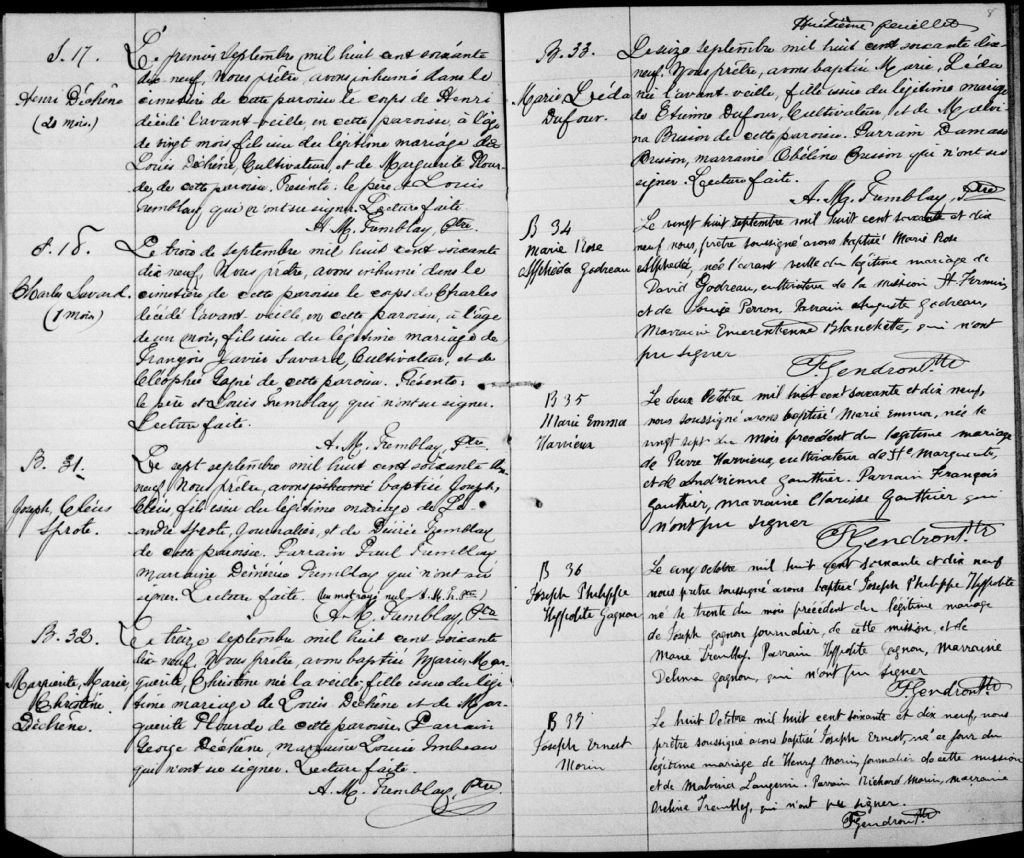 S. 17.
Henri Déchêne
(20 mois.)
Le premier septembre mil huit cent soixante
dix neuf, Nous prêtre, avons inhumé dans le
cimetière de cette paroisse le corps de Henri
décédé l'avant-veille, en cette paroisse, à l'âge
de vingt mois fils issu du légitime mariage de
Louis Déchène, Cultivateur, et de Marguerite Plour-
de, de cette paroisse. Présents: le père et Louis
Tremblay qui n'ont su signer. Lecture faite.
A. M. Tremblay, Ptre
S. 18.
Charles Savard.
(1 mois)
Le trois de septembre mil huit cent soixante
dix neuf, Nous prêtre, avons inhumé dans le
cimetière de cette paroisse le corps de Charles
décédé l'avant-veille, en cette paroisse, à l'âge
de un mois, fils issu du légitime mariage de
François Xavier Savard, Cultivateur, et de
Cléophée Gagné de cette paroisse. Présents:
le père et Louis Tremblay, qui n'ont su signer.
Lecture faite.
A. M. Tremblay, Ptre.
B. 31.
Joseph, Cléüs
Sprote.
Le sept septembre mil huit cent soixante dix
neuf, Nous prêtre, avons inhumé baptisé Joseph,
Cléüs, fils issu du légitime mariage de Lé-
andre Sprote, Journalier, et de Désirée Tremblay
de cette paroisse. Parrain Paul Tremblay
marraine Démérise Tremblay qui n'ont su
signer. Lecture faite. (un mot rayé nul A. M. T. Ptre)
A. M. Tremblay, Ptre
B. 32.
Marguerite, Marie,
Christine
Déchêne.
Le treize septembre mil huit cent soixante
dix-neuf, Nous prêtre, avons baptisé Marie, Mar-
guerite, Christine née la veille, fille issue du légi-
time mariage de Louis Déchène et de Mar-
guerite Plourde de cette paroisse. Parrain
George Déchène, marraine Louise Imbeau
qui n'ont su signer. Lecture faite.
A. M. Tremblay, Ptre
Huitième feuillet
8
B. 33.
Marie Léda
Dufour.
Le seize septembre mil huit cent soixante dix-
neuf, Nous prêtre, avons baptisé Marie, Léda
née l'avant-veille, fille issue du légitime mariage
de Etienne Dufour, Cultivateur, et de Malvi-
na Brisson de cette paroisse. Parrain Damase
Brisson, marraine Obéline Brisson qui n'ont su
signer. Lecture faite.
A. M. Tremblay, Ptre
B 34
Marie Rose
Alphéda Godreau
Le vingt huit septembre mil huit cent soixante et dix
neuf nous, prêtre soussigné avons baptisé Marie Rose
Alphéda, née l'avant veille du légitime mariage de
David Godreau, cultivateur de la mission St Firmin
et de Louise Perron, Parrain Auguste Godreau,
Marraine Emerentienne Blanchette, qui n'ont
pu signer
F. Gendron Ptre
B 35
Marie Emma
Harvieux
Le deux Octobre mil huit cent soixante et dix neuf,
nous soussigné avons baptisé Marie Emma, née le
vingt sept du mois précédent du légitime mariage
de Pierre Harvieux, cultivateur de Ste Marguerite,
et de Andrienne Gauthier. Parrain François
Gauthier, marraine Clarisse Gauthier qui
n'ont pu signer
F. Gendron Ptre
B 36
Joseph Philippe
Hyppolite Gagnon
Le cinq octobre mil huit cent soixante et dix neuf
nous prêtre soussigné avons baptisé Joseph Philippe Hyppolite
né le trente du mois précédent du légitime mariage
de Joseph Gagnon journalier, de cette mission, et de
Marie Tremblay. Parrain Hyppolite Gagnon, Marraine
Delima Gagnon, qui n'ont pu signer
F. Gendron Ptre
B 37
Joseph Ernest
Morin
Le huit Octobre mil huit cent soixante et dix neuf, nous
prêtre soussigné avons baptisé Joseph Ernest, né ce jour du
légitime mariage de Henry Morin, journalier de cette mission
et de Malvina Langevin. Parrain Richard Morin, marraine
Oreline Tremblay, qui n'ont pu signer.
F. Gendron Ptre